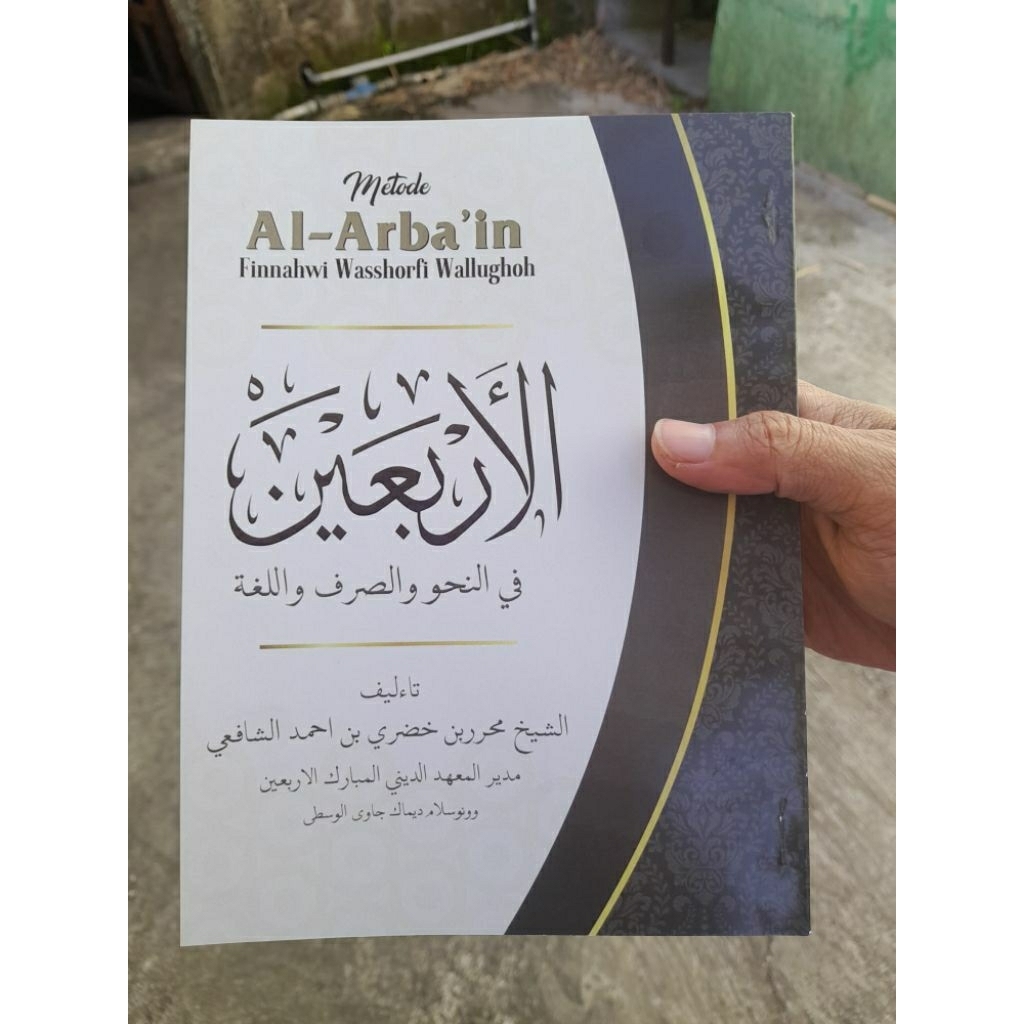 Metode
Al-Arba'in
Finnahwi Wasshorfi Wallughoh
الأربعين
في النحو والصرف واللغة
تاءليف
الشيخ محرربن خضري بن احمد الشافعي
مدير المعهد الديني المبارك الاربعين
وونوسلام ديماك جاوى الوسطى